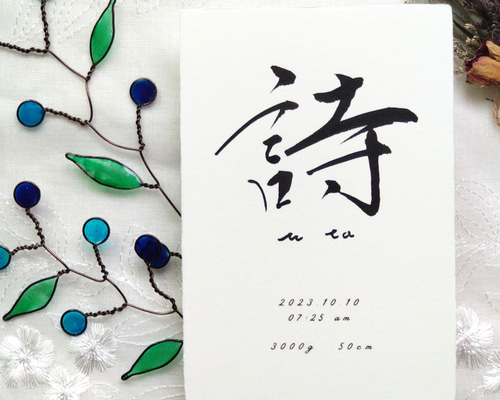 詩
uta
2023.10.10
07:25 am
3000g 50cm